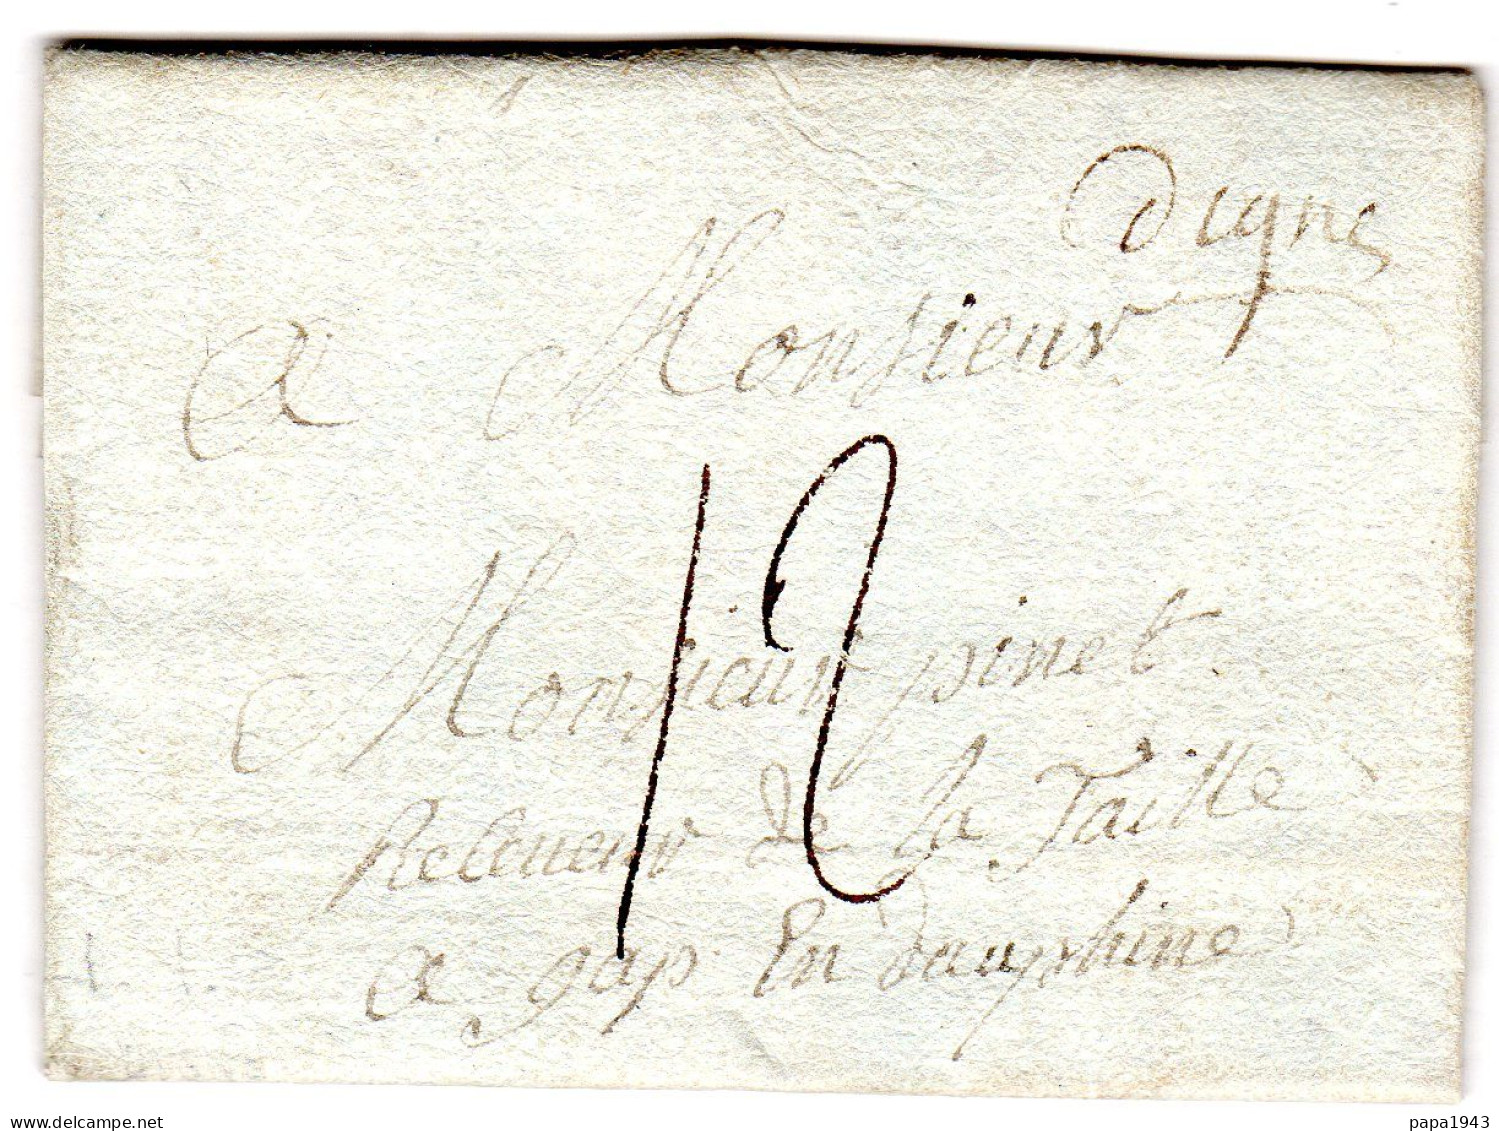 digne
a Monsieur
12
Monsieur pinet
Releveur de la Taille
a gap En dauphine
delcampe.net
papa1943